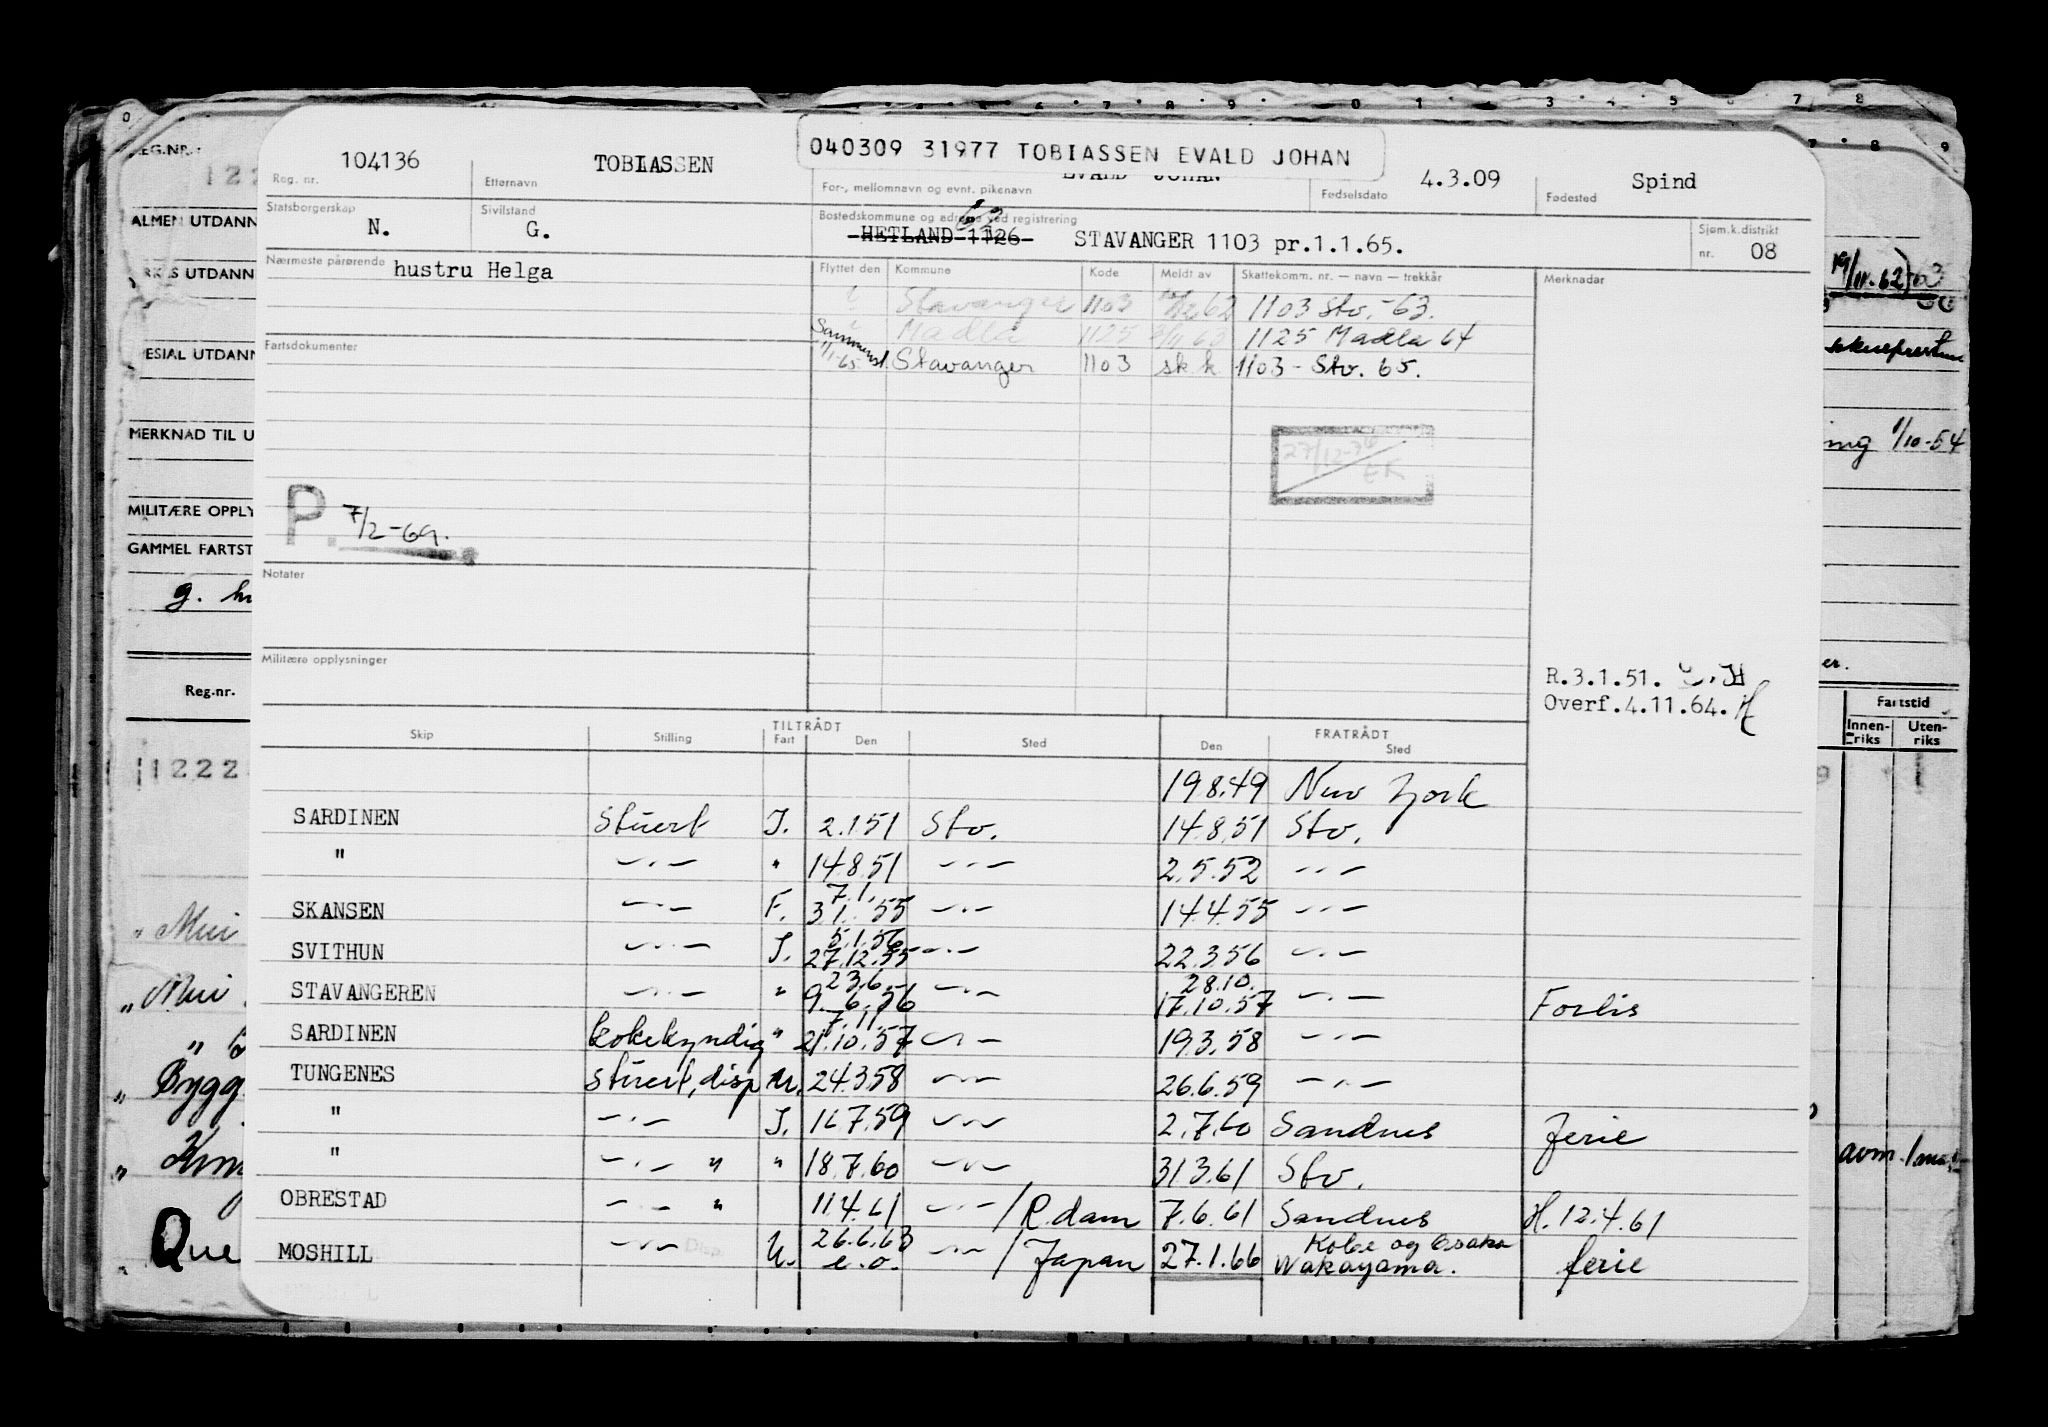 040309 31977 TOBIASSEN EVALD JOHAN
104136 TOBIASSEN EVALD JOHAN 4.3.09 Spind
Reg. nr. Etternavn For-, mellomnavn og evnt. pikenavn Fødselsdato Fødested
Statsborgerskap Sivilstand Bostedskommune og adresse ved registrering Sjøm.k.distrikt
N. G. HETLAND 1126 STAVANGER 1103 pr.1.1.65. nr. 08
Nærmeste pårørende hustru Helga
Flyttet den Kommune Kode Meldt av Skattekomm. nr. — navn — trekkår Merknader
Stavanger 1103 62 1103 Stv. -63.
Madla 1125 63 1125 Madla 64
1/1-65 Stavanger 1103 sk k 1103 - Stv. 65.
Fartsdokumenter
27/12-76
EK
P. 7/2-69.
Notater
Militære opplysninger
R.3.1.51.
Overf.4.11.64.
TILTRÅDT FRATRÅDT
Skip Stilling Fart Den Sted Den Sted
19.8.49 New York
SARDINEN Stuert I. 2.1.51 Stv. 14.8.51 Stv.
" —"— " 14.8.51 —"— 2.5.52 —"—
7.1.
SKANSEN —"— F. 31. 55 —"— 14.4.55 —"—
5.1.56
SVITHUN —"— I. 27.12.55 —"— 22.3.56 —"—
23.6. 28.10.
STAVANGEREN —"— " 9.6.56 —"— 17.10.57 —"— Forlis
7.11
SARDINEN kokekyndig " 21.10.57 —"— 19.3.58 —"—
TUNGENES Stuert, disp U. 24.3.58 —"— 26.6.59 —"—
" —"— I. 16.7.59 —"— 2.7.60 Sandnes Ferie
" —"— " " 18.7.60 —"— 31.3.61 Stv.
OBRESTAD —"— " 11.4.61 —"— / R.dam 7.6.61 Sandnes H. 12.4.61
26.6.63 Kobe og Osaka
MOSHILL —"— Disp. U. e.o. —"— / Japan 27.1.66 Wakayama. ferie
REG.NR.:
122
ALMEN UTDANN
YRKES UTDANN
SPESIAL UTDANN
MERKNAD TIL U
MILITÆRE OPPLY
GAMMEL FARTST
g.
Reg.nr.
1222
" Mui
" Mui
"
" Bygg
"
Que
19/11-62
ing 1/10-54
er.
Fartstid
Innen-riks Uten-riks
avm.